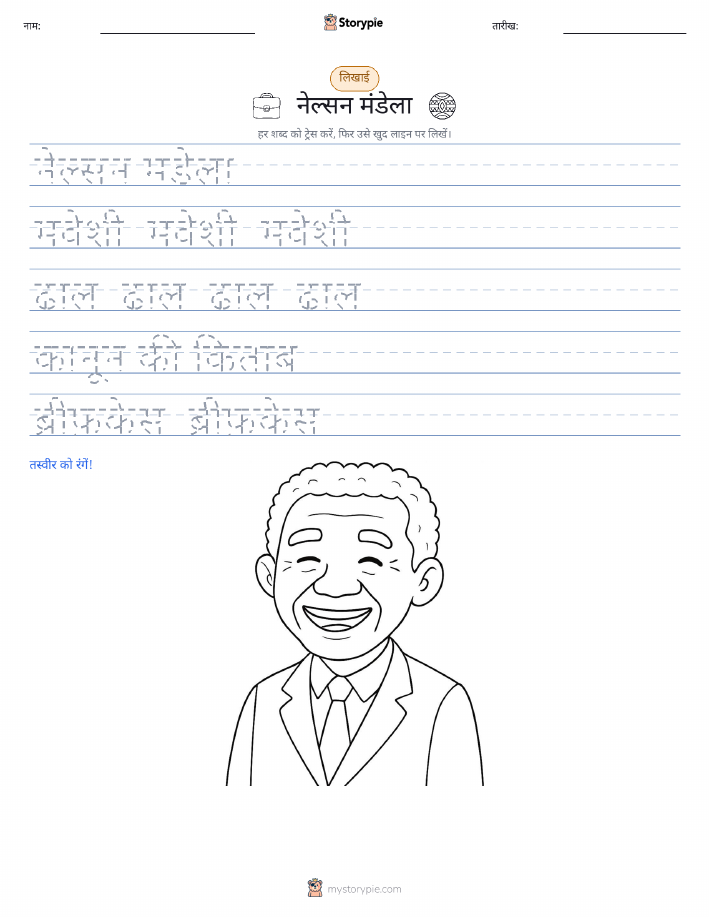 नाम:
Storypie
तारीख:
लिखाई
नेल्सन मंडेला
हर शब्द को ट्रेस करें, फिर उसे खुद लाइन पर लिखें।
नेल्सन मंडेला
मवेशी मवेशी मवेशी
ढाल ढाल ढाल ढाल
कानून की किताब
ब्रीफ़केस ब्रीफ़केस
तस्वीर को रंगें!
mystorypie.com